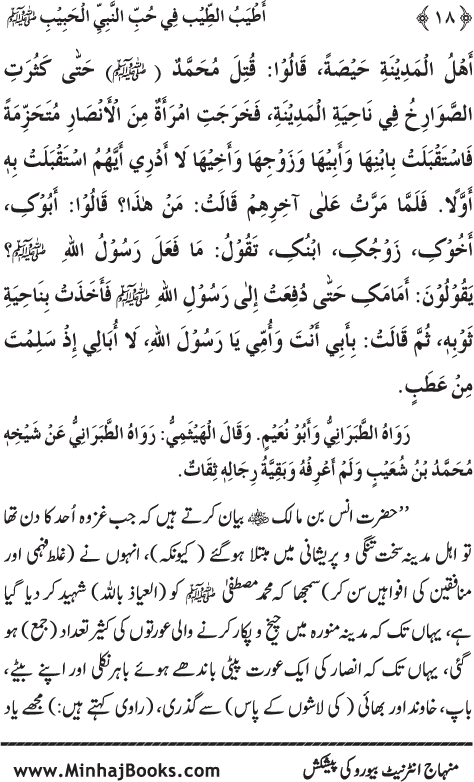 ﴿۱۸﴾ أَطْيَبُ الطِّيْبِ فِي حُبِّ النَّبِيِّ الْحَبِيْبِ ﷺ
أَهْلُ الْمَدِيْنَةِ حَيْصَةً، قَالُوْا: قُتِلَ مُحَمَّدٌ (ﷺ) حَتّٰى كَثُرَتِ
الصَّوَارِخُ فِي نَاحِيَةِ الْمَدِيْنَةِ، فَخَرَجَتِ امْرَأَةٌ مِنَ الْأَنْصَارِ مُتَحَزِّمَةً
فَاسْتَقْبَلَتْ بِابْنِهَا وَأَبِيْهَا وَزَوْجِهَا وَأَخِيْهَا لَا أَدْرِي أَيُّهُمُ اسْتَقْبَلَتْ بِهٖ
أَوَّلًا. فَلَمَّا مَرَّتْ عَلٰى آخِرِهِمْ قَالَتْ: مَنْ هٰذَا؟ قَالُوْا: أَبُوْکِ،
أَخُوْکِ، زَوْجُکِ، ابْنُکِ، تَقُوْلُ: مَا فَعَلَ رَسُوْلُ اللهِ ﷺ؟
يَقُوْلُوْنَ: أَمَامَکِ حَتّٰى دُفِعَتْ إِلٰى رَسُوْلِ اللهِ ﷺ فَأَخَذَتْ بِنَاحِيَةِ
ثَوْبِهٖ، ثُمَّ قَالَتْ: بِأَبِي أَنْتَ وَأُمِّي يَا رَسُوْلَ اللهِ، لَا أُبَالِي إِذْ سَلِمْتَ
مِنْ عَطَبٍ.
رَوَاهُ الطَّبَرَانِيُّ وَأَبُوْ نُعَيْمٍ. وَقَالَ الْهَيْثَمِيُّ: رَوَاهُ الطَّبَرَانِيُّ عَنْ شَيْخِهٖ
مُحَمَّدِ بْنِ شُعَيْبٍ وَلَمْ أَعْرِفْهُ وَبَقِيَّةُ رِجَالِهٖ ثِقَاتٌ.
’’حضرت انس بن مالک ؓ بیان کرتے ہیں کہ جب غزوہ اُحد کا دن تھا
تو اہل مدینہ سخت تنگی و پریشانی میں مبتلا ہوگئے (کیونکہ)، انہوں نے (غلط فہمی اور
منافقین کی افواہیں سن کر) سمجھا کہ محمد مصطفیٰ ﷺ کو (العیاذ باللہ) شہید کر دیا گیا
ہے، یہاں تک کہ مدینہ منورہ میں چیخ و پکار کرنے والی عورتوں کی کثیر تعداد (جمع) ہو
گئی، یہاں تک کہ انصار کی ایک عورت پیٹی باندھے ہوئے باہر نکلی اور اپنے بیٹے،
باپ، خاوند اور بھائی (کی لاشوں کے پاس) سے گذری، (راوی کہتے ہیں:) مجھے یاد
منہاج انٹرنیٹ بیورو کی پیشکش www.MinhajBooks.com